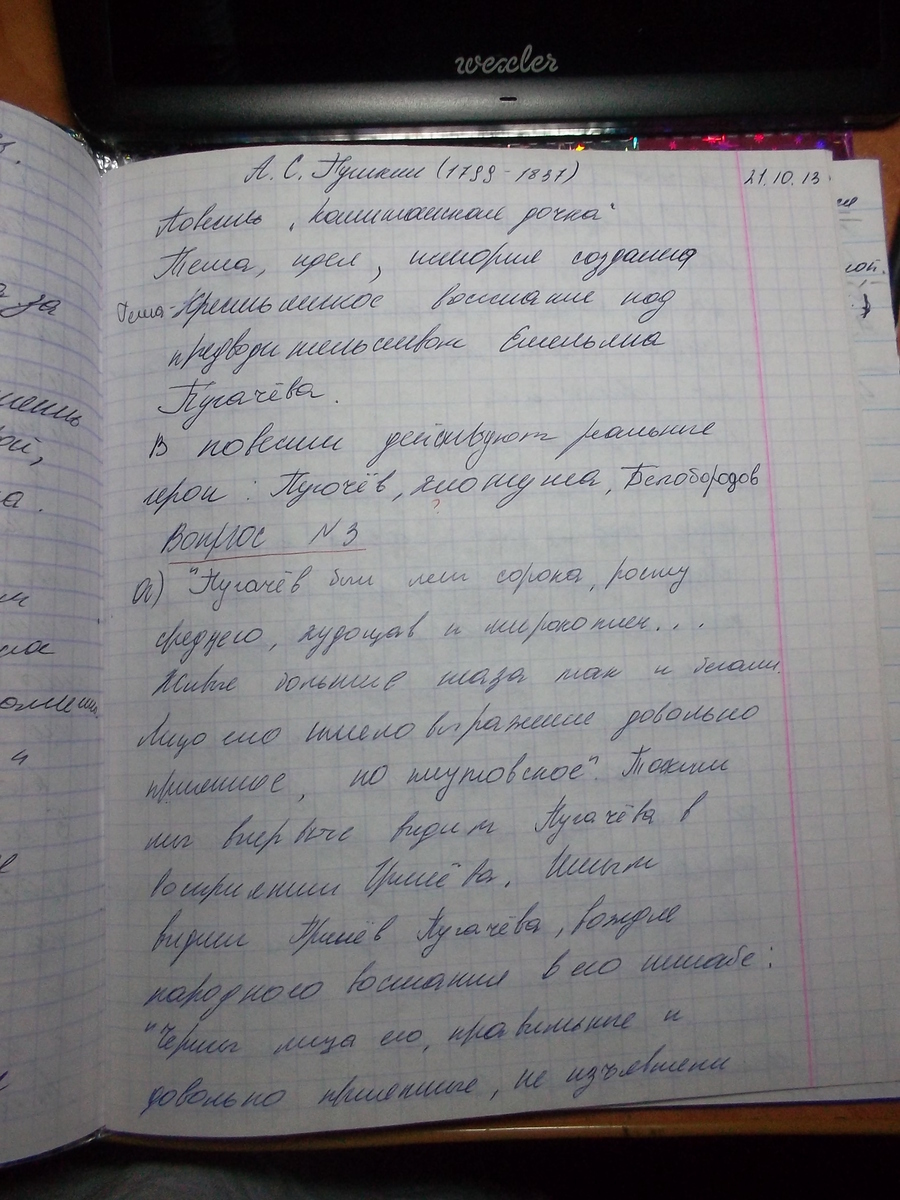 wexler
А. С. Пушкин (1799-1837)
21.10.13
Повесть „Капитанская дочка"
Тема, идея, история создания
Тема-Крестьянское восстание под
предводительством Емельяна
Пугачёва.
В повести действуют реальные
герои: Пугачёв, хлопуша, Белобородов
?
Вопрос N 3
а) "Пугачёв был лет сорока, росту
среднего, худощав и широкоплеч...
Живые большие глаза так и бегали.
Лицо его имело выражение довольно
приятное, но плутовское". Таким
мы впервые видим Пугачёва в
восприятии Гринёва. Иным
видит Гринёв Пугачёва, вождя
народного восстания в его штабе:
"Черты лица его, правильные и
довольно приятные, не изъявляли
за